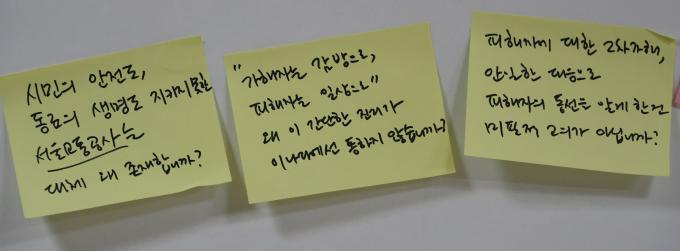 시민의 안전도,
동료의 생명도 지키지 못할
서울교통공사는
대체 왜 존재합니까?
"가해자는 감방으로,
피해자는 일상으로"
왜 이 간단한 진리가
이 나라에선 통하지 않습니까?
피해자에 대한 2차가해,
안일한 대응으로
피해자의 동선을 알게 한 건
미필적 고의가 아닙니까?